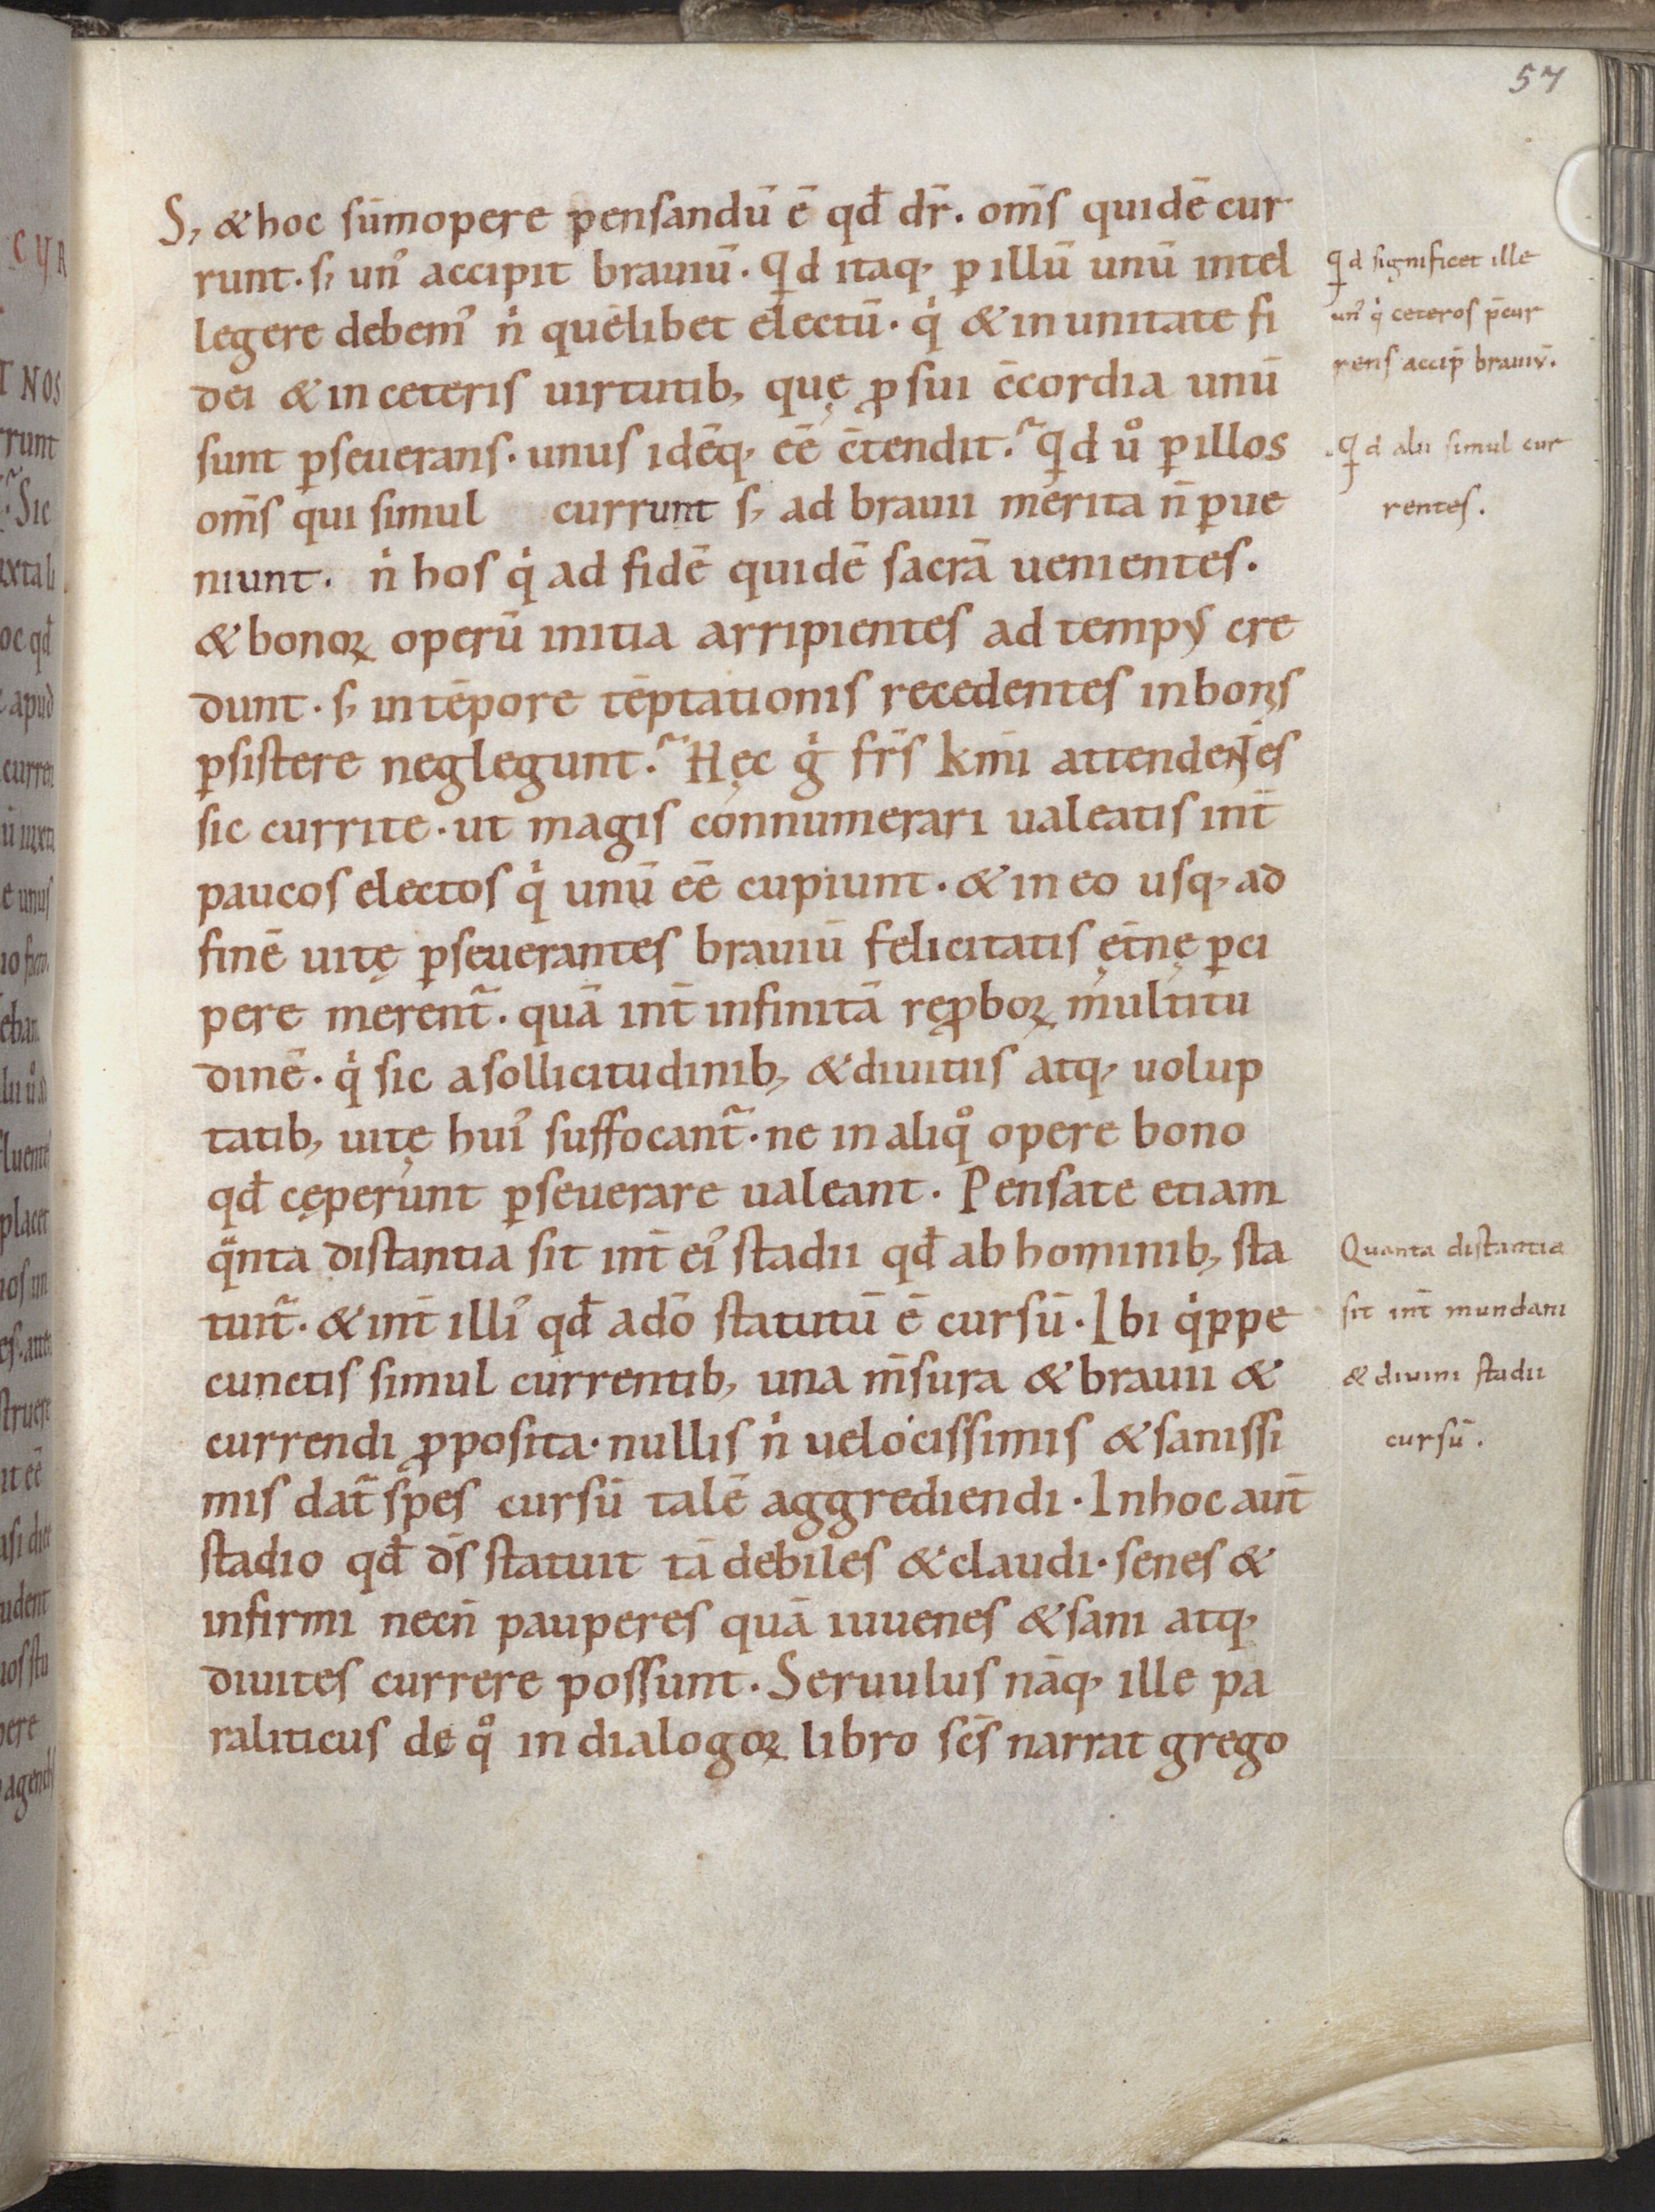 57
S, & hoc sūmopere pensandū ē qđ dr̄. om̄s quidē cur
runt. s, un᾿ accipit brauiū. Qd itaq, ꝑ illū unū intel
legere debem᾿ n̍ quēlibet electū. q̍ & in unitate fi
dei & in ceteris uirtutib, quę ꝓ sui c̄cordia unū
sunt ꝑseuerans. unus idēq, eē c̄tendit. Qd ů ꝑ illos
om̄s qui simul currunt s, ad brauii merita n̄ ꝑue
niunt. n̍ hos q̍ ad fidē quidē sacrā uenientes.
& bonoꝝ operū initia arripientes ad tempꝰ cre
dunt. s, in tēpore tēptationis recedentes in bonis
ꝑsistere neglegunt. Hęc g̍ fr̄s km̄i attendentes
sic currite. ut magis connumerari ualeatis int̄
paucos electos q̍ unū eē cupiunt. & in eo usq, ad
finē uitę ꝑseuerantes brauiū felicitatis ęt̄nę ꝑci
pere merent᷑. quā int̄ infinitā reꝓboꝝ multitu
dinē. q̍ sic a sollicitudinib, & diuitiis atq, uolup
tatib, uitę hui᾿ suffocant᷑. ne in aliqͦ opere bono
qđ cęperunt ꝑseuerare ualeant. Pensate etiam
qͣnta distantia sit int̄ ei᾿ stadii qđ ab hominib, sta
tuit᷑. & int̄ illi᾿ qđ a dō statutū ē cursū. Ibi q̍ppe
cunctis simul currentib, una m̄sura & brauii &
currendi ꝓposita. nullis n̍ uelocissimis & sanissi
mis dat᷑ spes cursū talē aggrediendi. In hoc aut̄
stadio qđ d̄s statuit tā debiles & claudi. senes &
infirmi necn̄ pauperes quā iuuenes & sani atq,
diuites currere possunt. Seruulus nāq, ille pa
raliticus de qͦ in dialogoꝝ libro sc̄s narrat grego
Qd significet ille
un᾿ q̍ ceteros p̄cur
rens accip̄ brauiū.
Qd alii simul cur
rentes.
Quanta distantia
sit int̄ mundani
& diuini stadii
cursū.